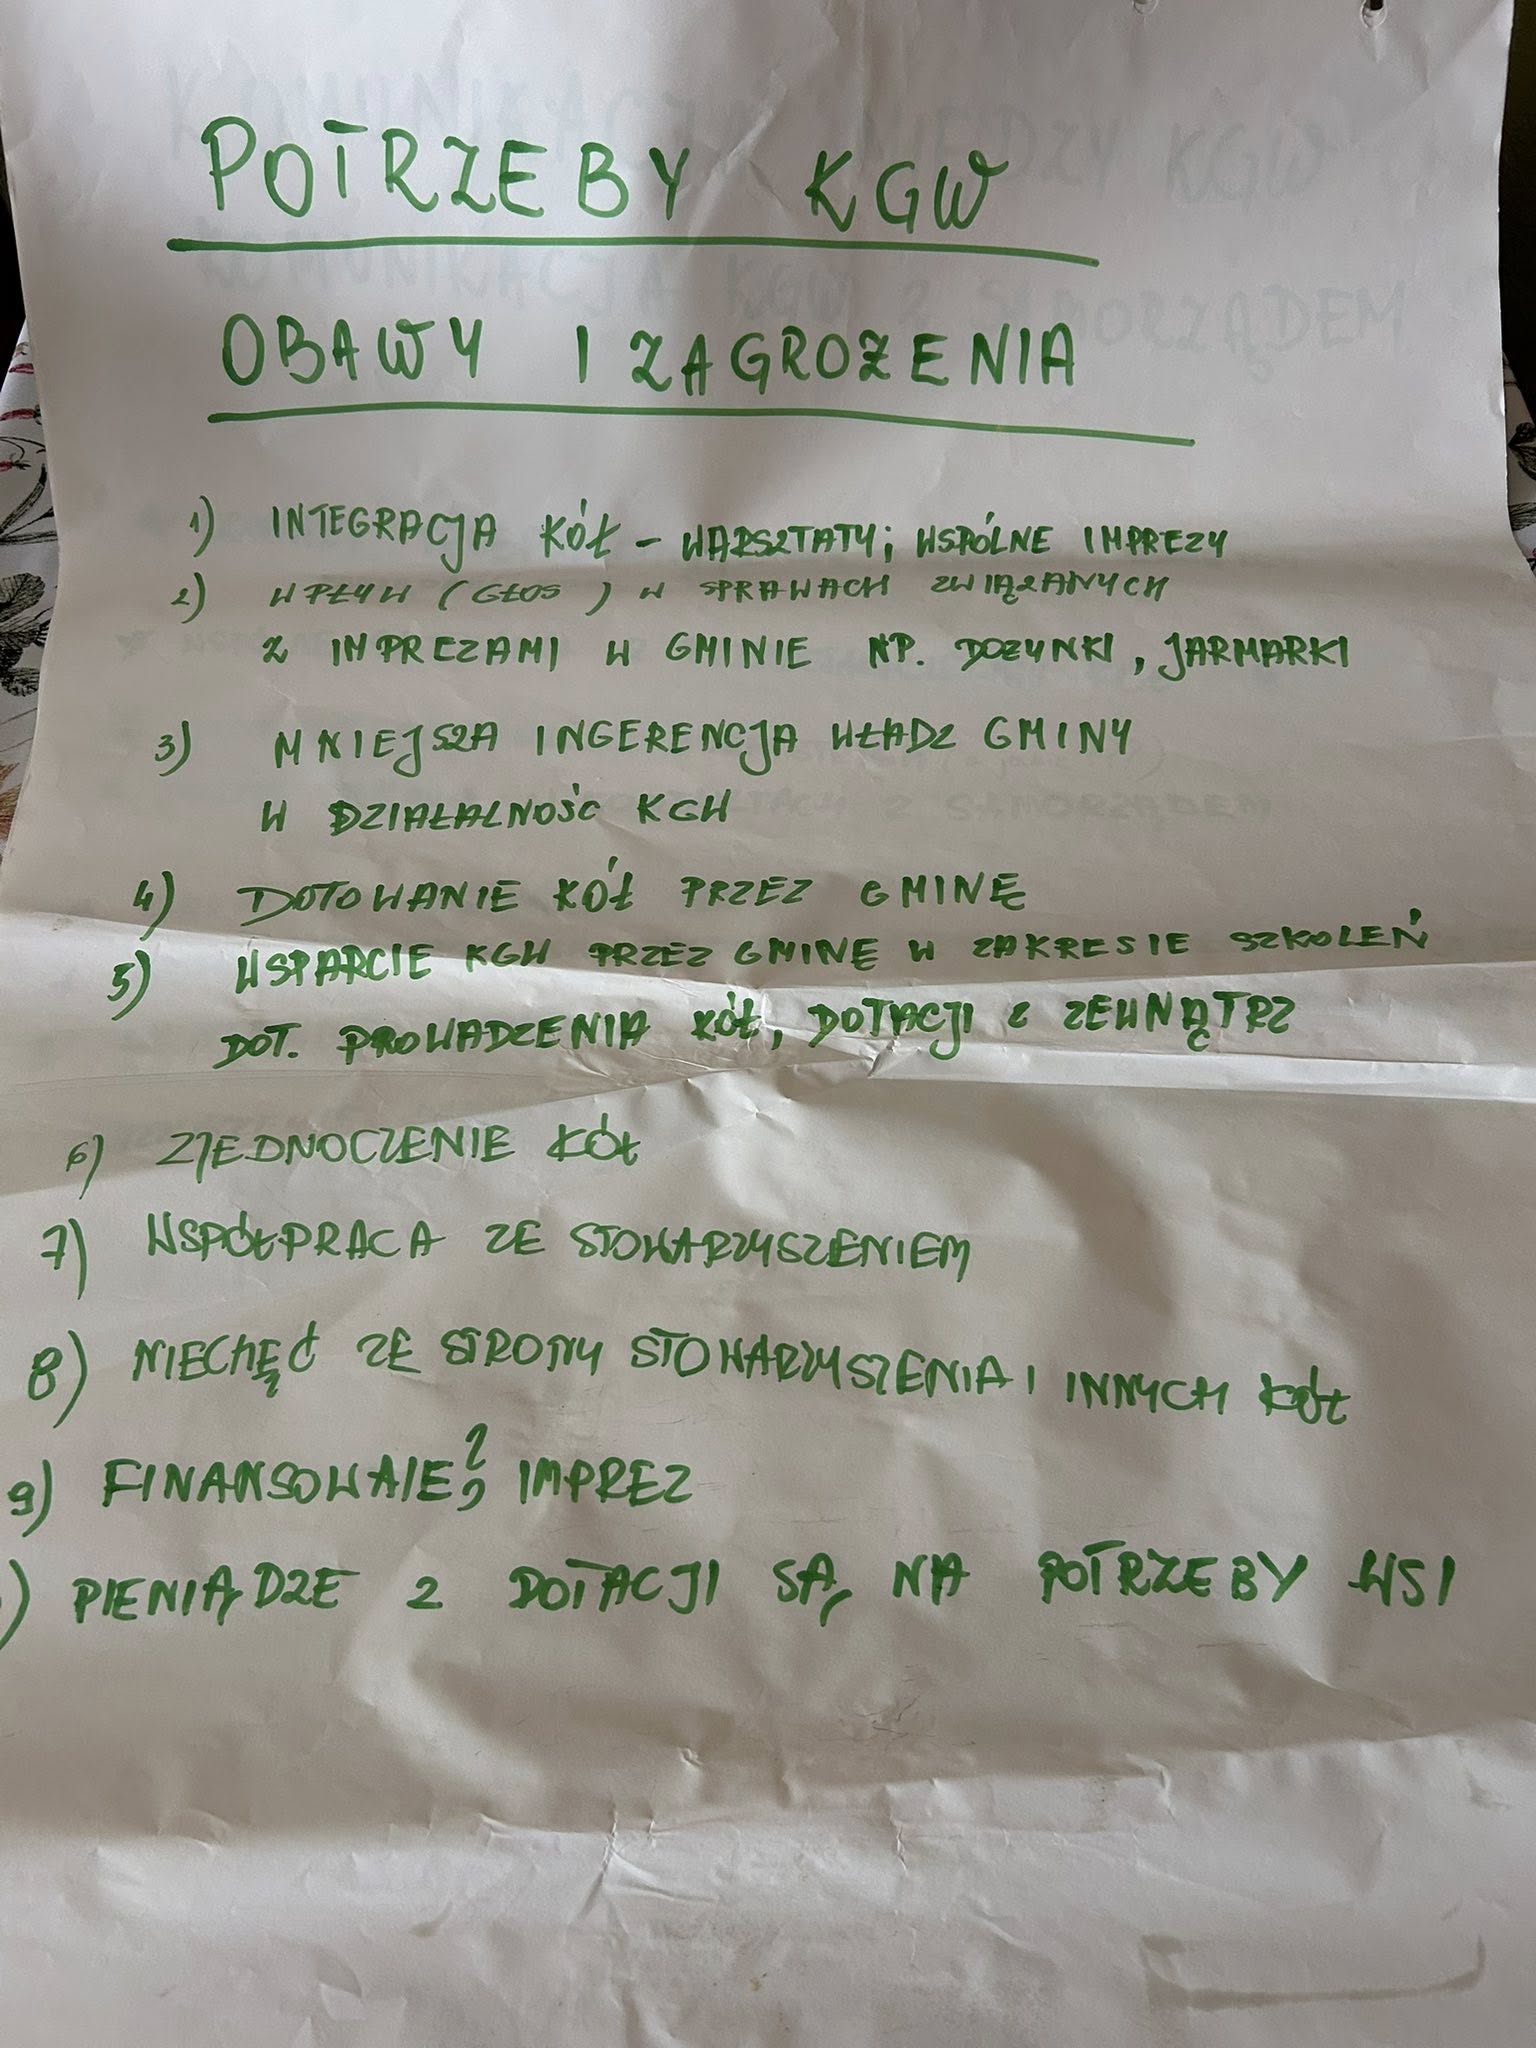 POTRZEBY KGW
OBAWY I ZAGROŻENIA
1) INTEGRACJA KÓŁ - WARSZTATY; WSPÓLNE IMPREZY
2) WPŁYW (GŁOS) W SPRAWACH ZWIĄZANYCH
Z IMPREZAMI W GMINIE NP. DOŻYNKI, JARMARKI
3) MNIEJSZA INGERENCJA WŁADZ GMINY
W DZIAŁALNOŚĆ KGW
4) DOTOWANIE KÓŁ PRZEZ GMINĘ
5) WSPARCIE KGW PRZEZ GMINĘ W ZAKRESIE SZKOLEŃ
DOT. PROWADZENIA KÓŁ, DOTACJI Z ZEWNĄTRZ
6) ZJEDNOCZENIE KÓŁ
7) WSPÓŁPRACA ZE STOWARZYSZENIEM
8) NIECHĘĆ ZE STRONY STOWARZYSZENIA I INNYCH KÓŁ
9) FINANSOWAIE? IMPREZ
) PIENIĄDZE Z DOTACJI SĄ NA POTRZEBY WSI